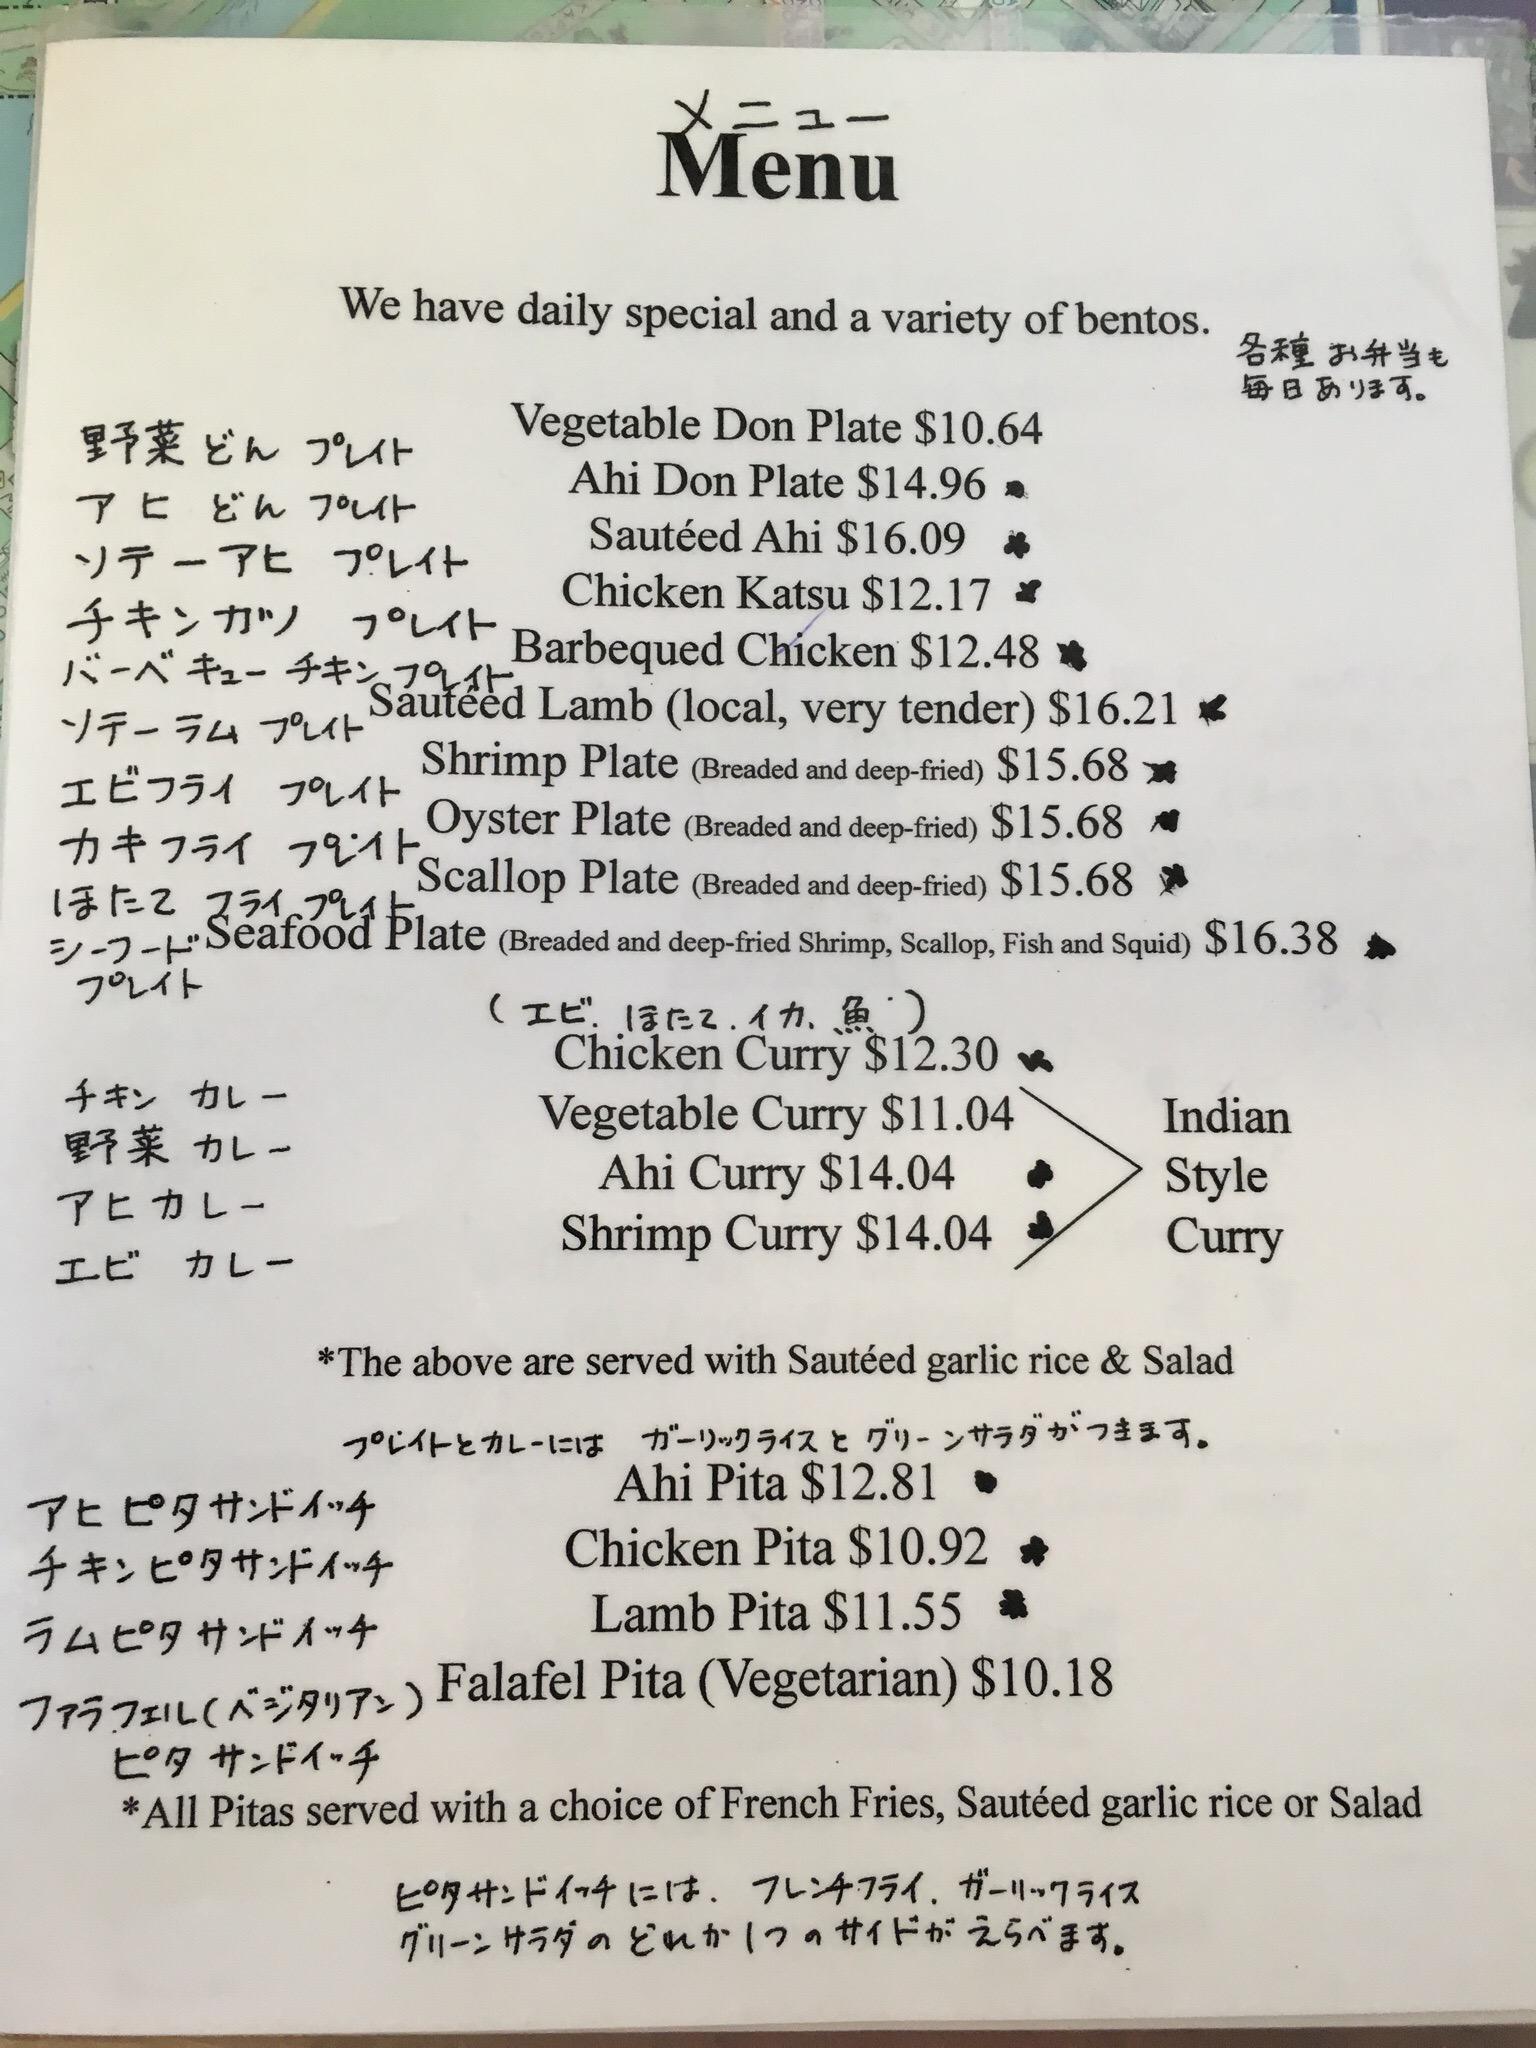 メニュー
Menu
We have daily special and a variety of bentos.
各種 お弁当も
毎日あります。
野菜どん プレイト Vegetable Don Plate $10.64
アヒ どん プレイト Ahi Don Plate $14.96
ソテーアヒ プレイト Sautéed Ahi $16.09
チキンカツ プレイト Chicken Katsu $12.17
バーベキューチキンプレイト Barbequed Chicken $12.48
ソテーラム プレイト Sautéed Lamb (local, very tender) $16.21
エビフライ プレイト Shrimp Plate (Breaded and deep-fried) $15.68
カキフライ プレイト Oyster Plate (Breaded and deep-fried) $15.68
ほたて フライ プレイト Scallop Plate (Breaded and deep-fried) $15.68
シーフード Seafood Plate (Breaded and deep-fried Shrimp, Scallop, Fish and Squid) $16.38
プレイト
(エビ、ほたて、イカ、魚)
チキン カレー Chicken Curry $12.30
野菜 カレー Vegetable Curry $11.04 Indian
アヒカレー Ahi Curry $14.04 Style
エビ カレー Shrimp Curry $14.04 Curry
*The above are served with Sautéed garlic rice & Salad
プレイトとカレーには ガーリックライスとグリーンサラダがつきます。
アヒピタサンドイッチ Ahi Pita $12.81
チキンピタサンドイッチ Chicken Pita $10.92
ラムピタサンドイッチ Lamb Pita $11.55
ファラフェル(ベジタリアン) Falafel Pita (Vegetarian) $10.18
ピタサンドイッチ
*All Pitas served with a choice of French Fries, Sautéed garlic rice or Salad
ピタサンドイッチには、フレンチフライ、ガーリックライス
グリーンサラダのどれか1つのサイドがえらべます。